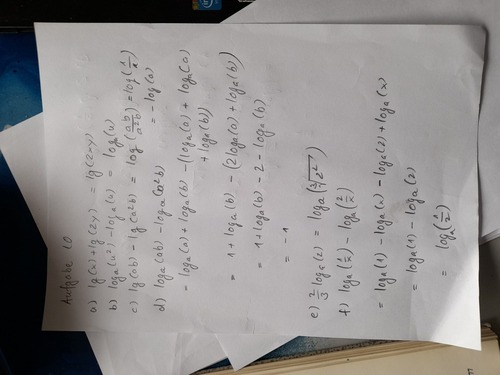 Aufgabe 10
a) lg(x) + lg(2y) = lg(2xy)
b) logₐ(u²) - logₐ(u) = log(u)
c) lg(ab) - lg(a²b) = log(ab/a²b) = log(1/a)
= -log(a)
d) logₐ(ab) - logₐ(a²b)
= logₐ(a) + logₐ(b) - (logₐ(a) + logₐ(a)
+ logₐ(b))
= 1 + logₐ(b) - (2logₐ(a) + logₐ(b))
= 1 + logₐ(b) - 2 - logₐ(b)
= -1
e) 2/3 logₐ(z) = logₐ(∛z²)
f) logₐ(1/x) - logₐ(2/x)
= logₐ(1) - logₐ(x) - logₐ(2) + logₐ(x)
= logₐ(1) - logₐ(2)
= logₐ(1/2)